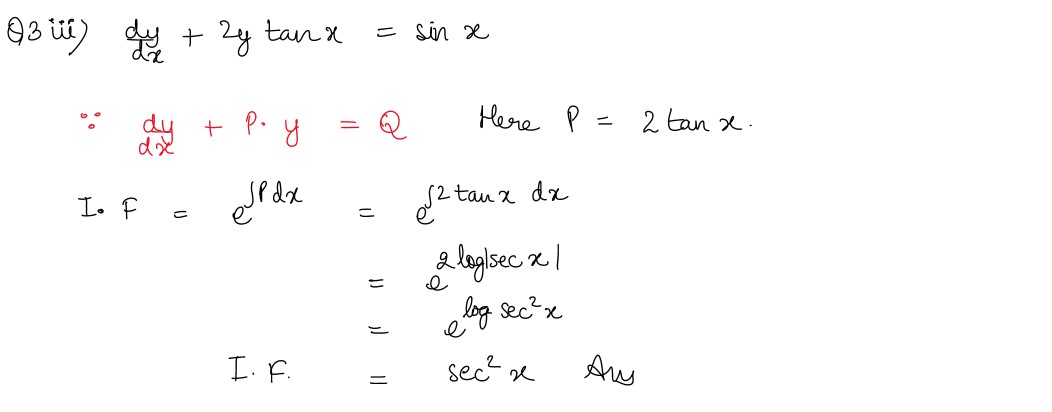 Q3 iii) dy/dx + 2y tan x = sin x
∵ dy/dx + P. y = Q Here P = 2 tan x.
I. F = e^∫P dx = e^∫2 tan x dx
= e^2 log|sec x|
= e^log sec² x
I. F. = sec² x Ans